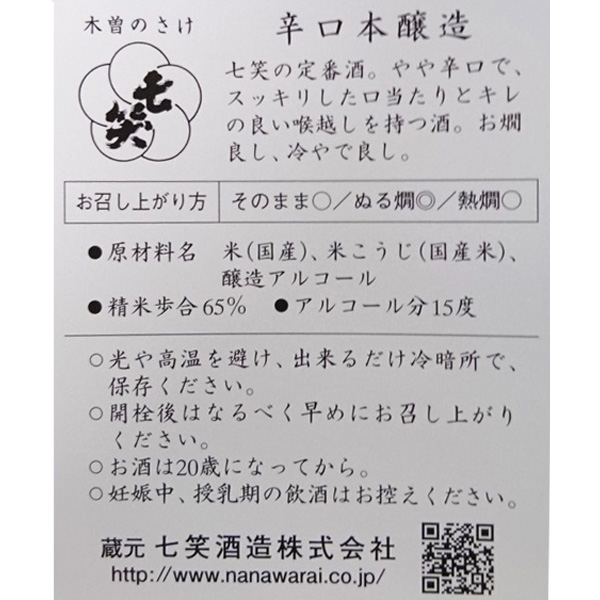 木曽のさけ
七笑
辛口本醸造
七笑の定番酒。やや辛口で、
スッキリした口当たりとキレ
の良い喉越しを持つ酒。お燗
良し、冷やで良し。
お召し上がり方 そのまま○／ぬる燗◎／熱燗○
●原材料名 米(国産)、米こうじ(国産米)、
醸造アルコール
●精米歩合65% ●アルコール分15度
○光や高温を避け、出来るだけ冷暗所で、
保存ください。
○開栓後はなるべく早めにお召し上がり
ください。
○お酒は20歳になってから。
○妊娠中、授乳期の飲酒はお控えください。
蔵元 七笑酒造株式会社
http://www.nanawarai.co.jp/